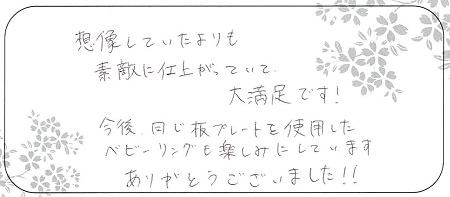 想像していたよりも
素敵に仕上がっていて、
大満足です!
今後、同じ板プレートを使用した
ベビーリングも楽しみにしています
ありがとうございました!!